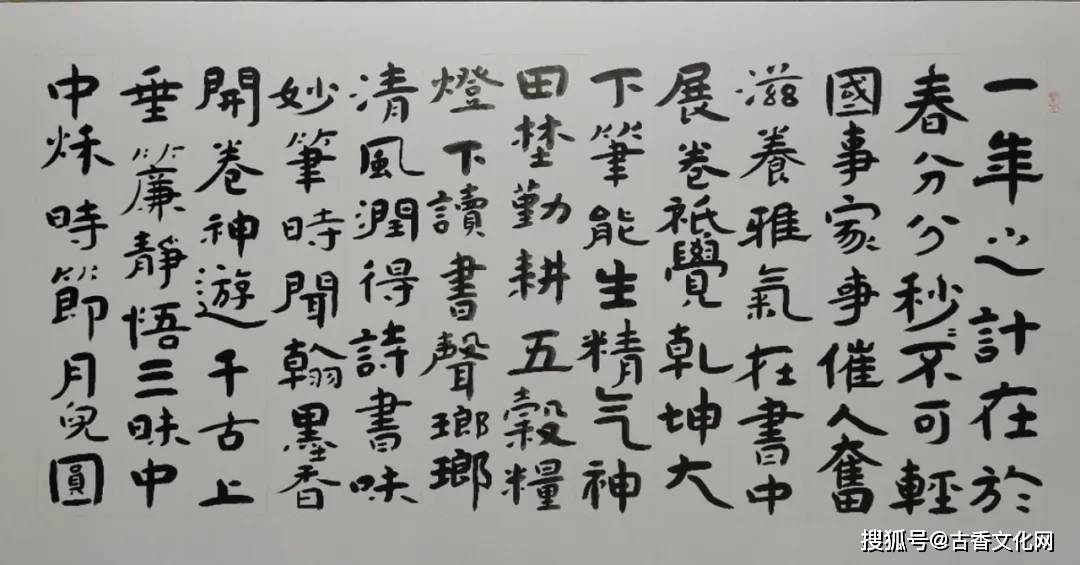 一年之計在於
春分分秒々不可輕
國事家事催人奮
滋養雅氣在書中
展卷祇覺乾坤大
下筆能生精气神
田埜勤耕五穀糧
燈下讀書聲瑯瑯
清風潤得詩書味
妙筆時聞翰墨香
開卷神遊千古上
垂簾靜悟三昧中
中秋時節月兒圓
搜狐号@古香文化网